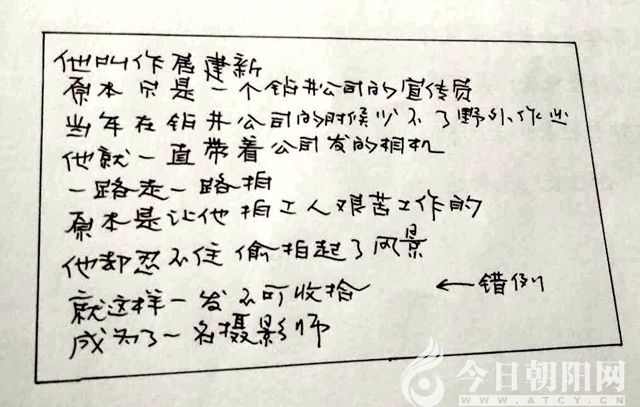 他叫作居建新
原本只是一个钻井公司的宣传员
当年在钻井公司的时候少不了野外作业
他就一直带着公司发的相机
一路走一路拍
原本是让他拍工人艰苦工作的
他却忍不住偷拍起了风景
就这样一发不可收拾
←错例
成为了一名摄影师
今日朝阳网
WWW.ATCY.CN